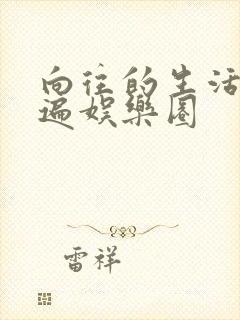 向往的生活
遍娱乐圈
雷祥